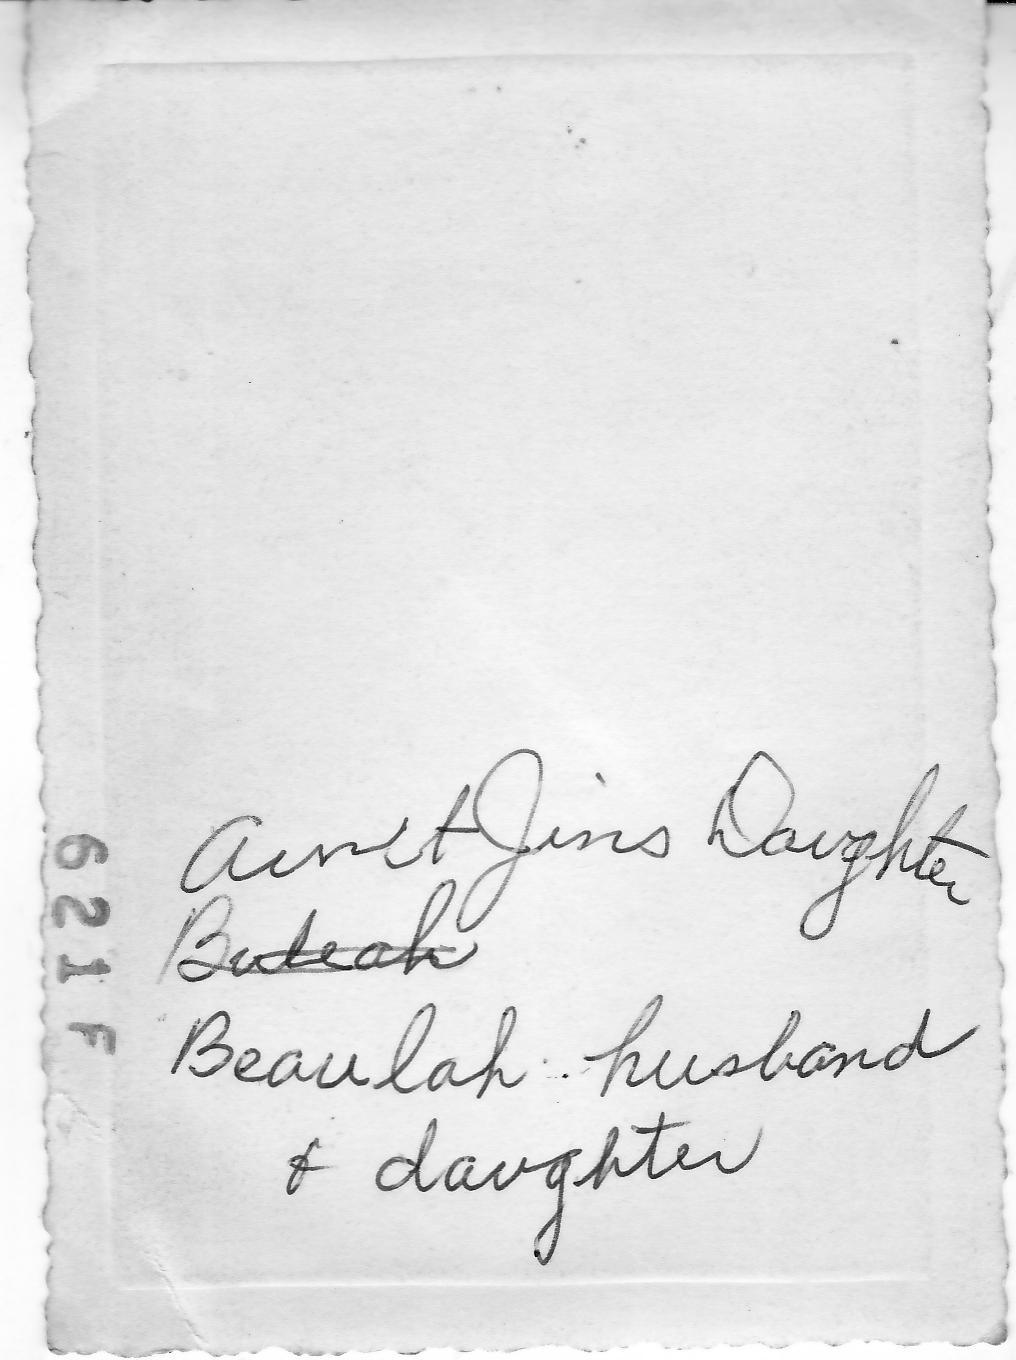 Aunt Jins Daughter
Beaulah husband
& daughter
621F